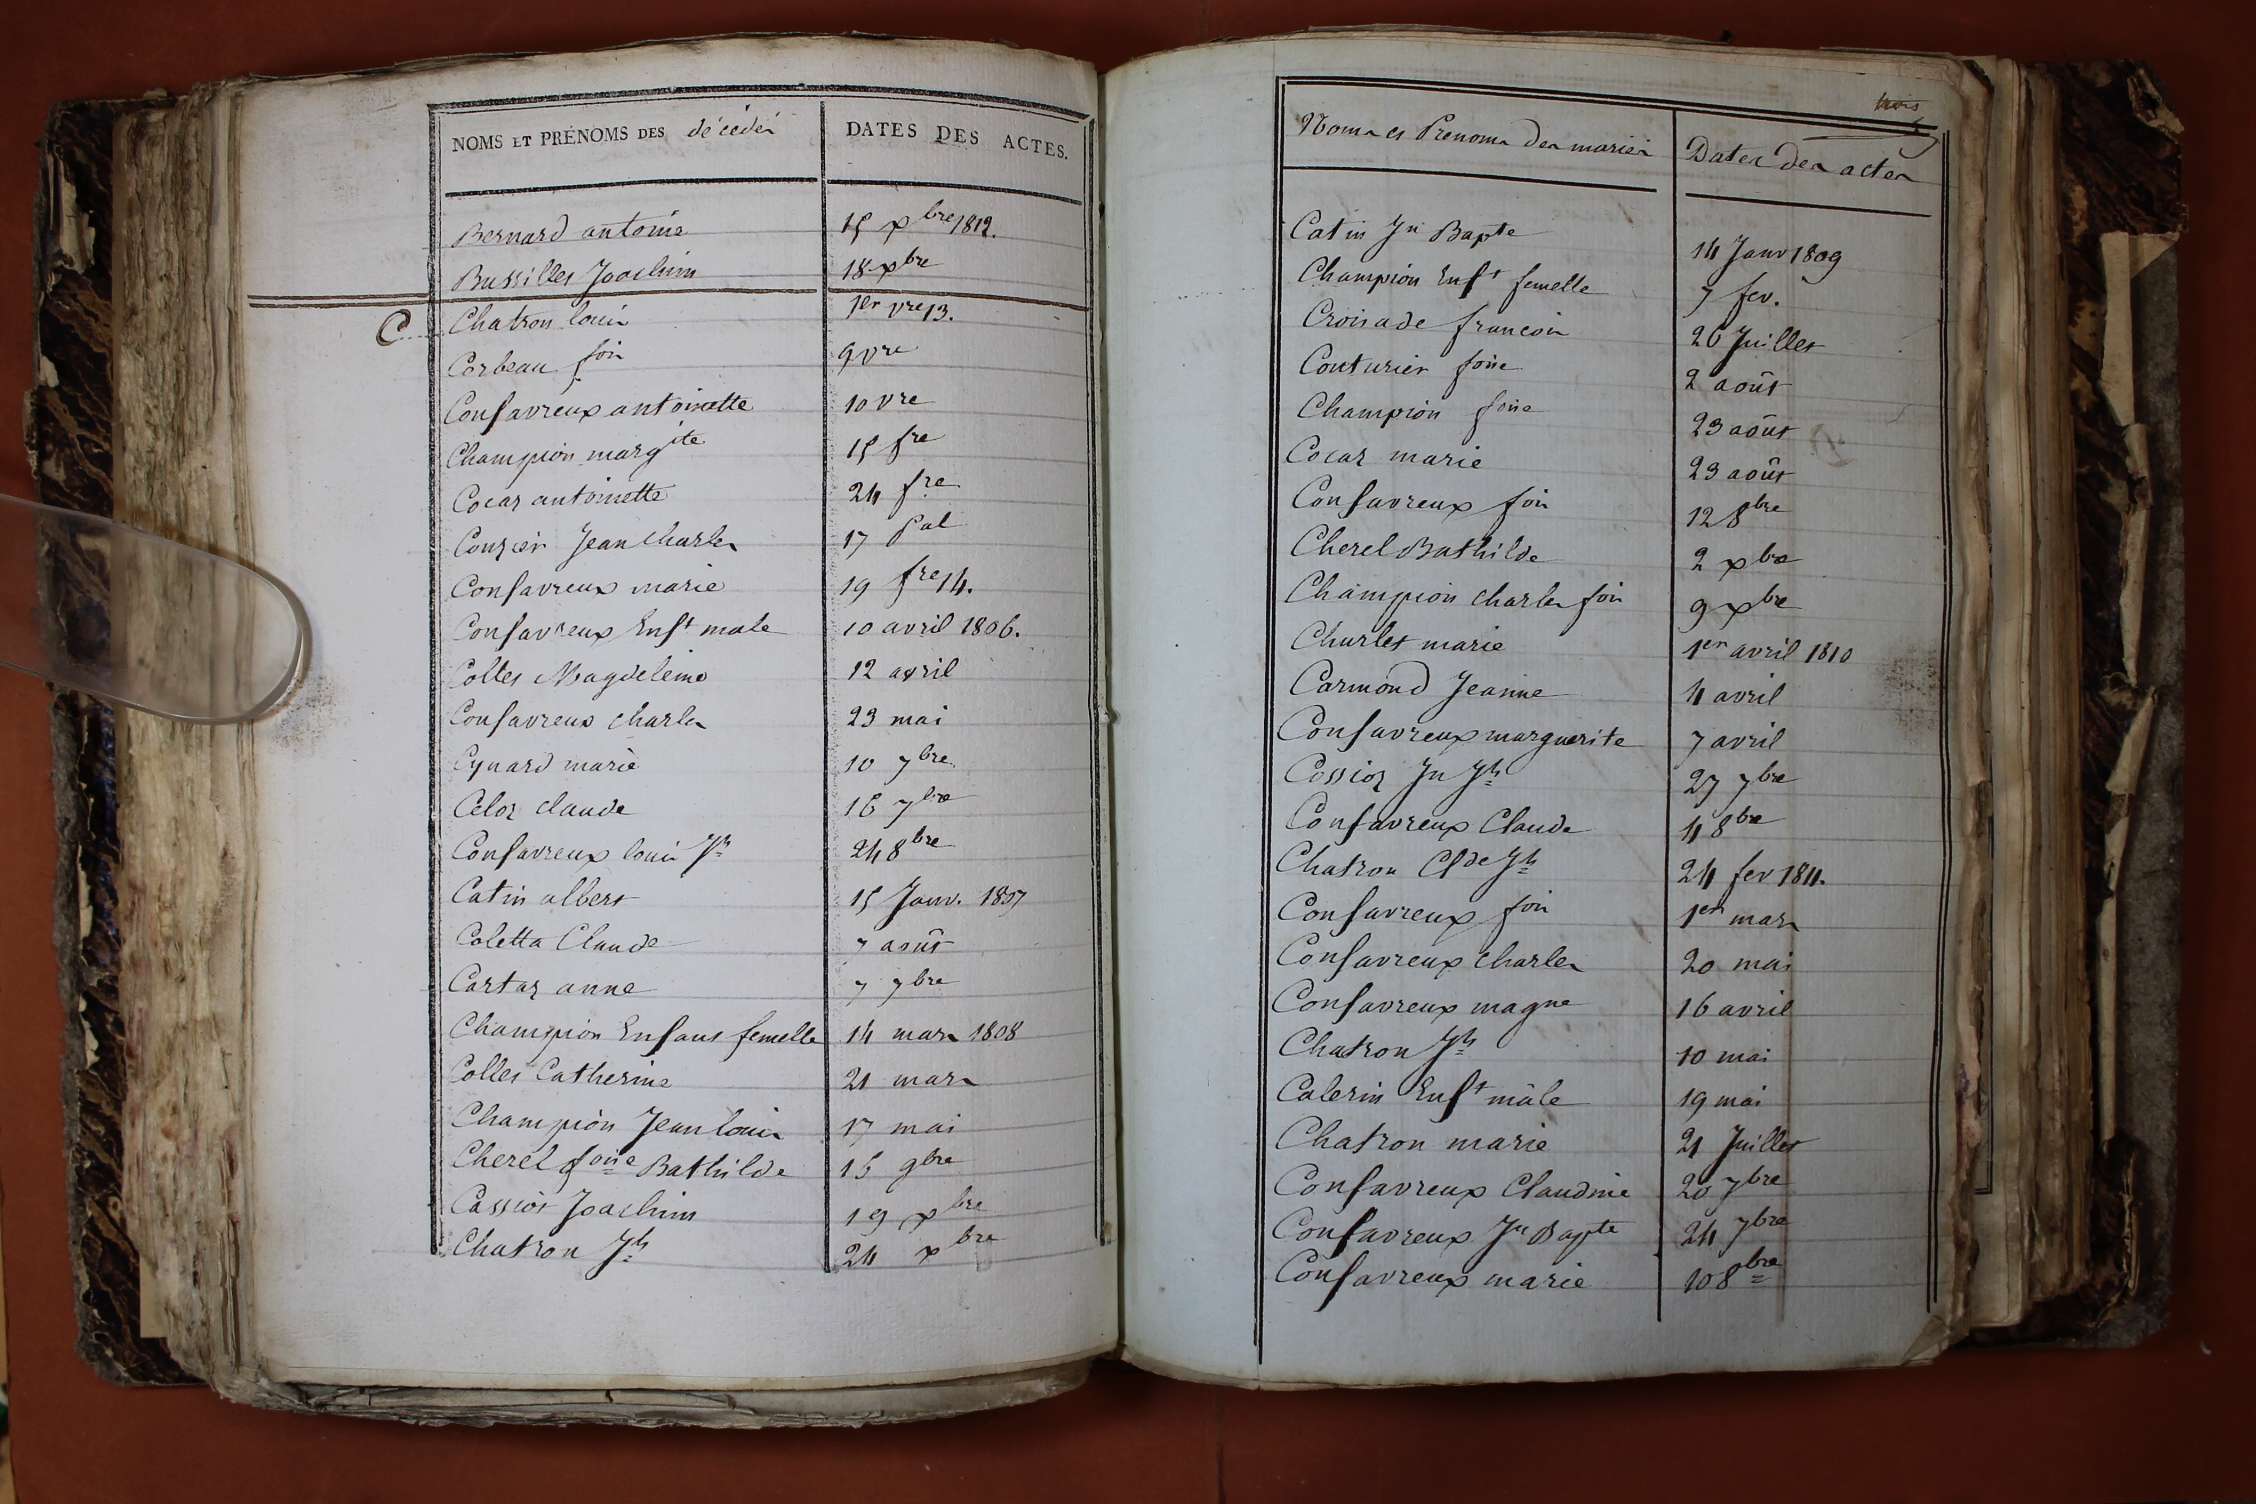 NOMS ET PRÉNOMS DES décédés DATES DES ACTES.
Bernard antoine 15 xbre 1812.
Bussilles Joachim 18 xbre
C Chatron louis 1er vre 13.
Corbeau fois 9 vre
Confavreux antoinette 10 vre
Champion margite 15 fre
Cocaz antoinette 24 fre
Couzier Jean charles 17 Pal
Confavreux marie 19 fre 14.
Confavreux Enft male 10 avril 1806.
Collet Magdeleine 12 avril
Confavreux charles 23 mai
Cynard marie 10 7bre
Celoz claude 16 7bre
Confavreux louis Jh 24 8bre
Catin albert 15 Janv. 1807
Coletta Claude 7 août
Cartaz anne 7 7bre
Champion Enfant femelle 14 mars 1808
Collet Catherine 21 mars
Champion Jean louis 17 mai
Cherel foise Bathilde 16 9bre
Cassioz Joachim 19 xbre
Chatron Jh 24 xbre
Noms et Prenoms des mariés Dates des actes
Catin Jn Bapte 14 Janv 1809
Champion Enft femelle 7 fev.
Croisade francois 26 Juillet
Couturier foise 2 août
Champion foise 23 août
Cocaz marie 23 août
Confavreux fois 12 8bre
Cherel Bathilde 2 xbre
Champion charles fois 9 xbre
Charlet marie 1er avril 1810
Carmond Jeanne 4 avril
Confavreux marguerite 7 avril
Cossioz Jn Jh 27 7bre
Confavreux Claude 4 8bre
Chatron Clde Jh 24 fev 1811.
Confavreux fois 1er mars
Confavreux charles 20 mai
Confavreux magne 16 avril
Chatron Jh 10 mai
Calerin Enft mâle 19 mai
Chatron marie 21 Juillet
Confavreux Claudine 20 7bre
Confavreux Jn Bapte 24 7bre
Confavreux marie 10 8bre